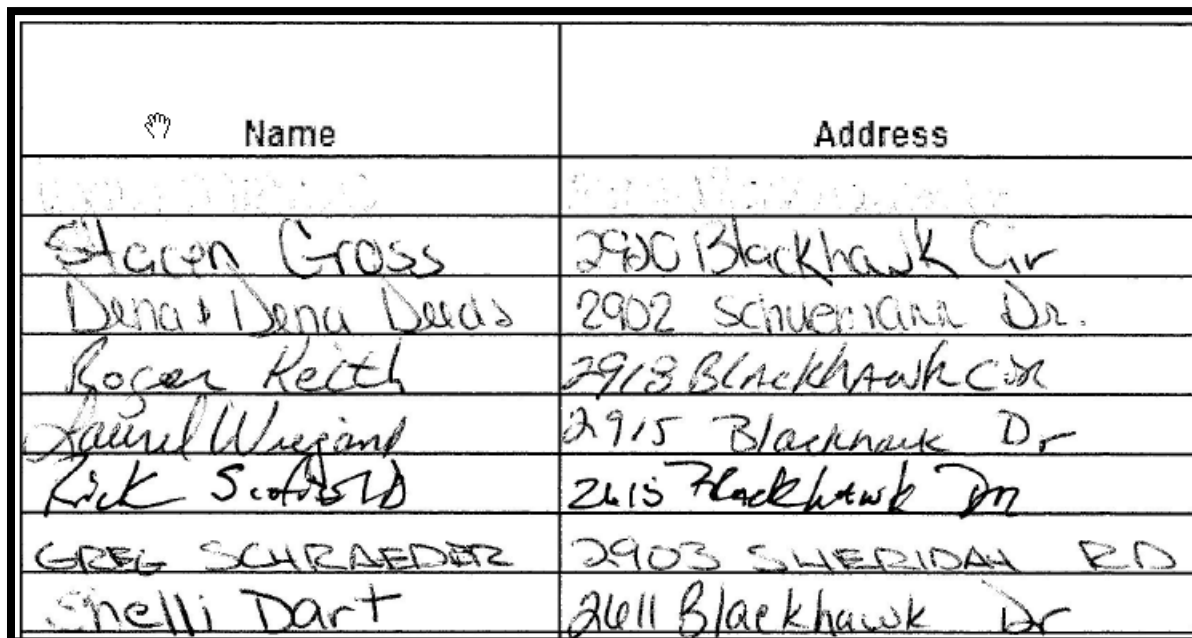 Name Address
Stacen Gross 2920 Blackhawk Cir
Dena & Dena Deeds 2902 Schuemann Dr.
Roger Keith 2918 Blackhawk Cir
Laurel Wiegand 2915 Blackhawk Dr
Rick Scofield 2615 Blackhawk Dr
GREG SCHRAEDER 2903 SHERIDAN RD
Shelli Dart 2611 Blackhawk Dr